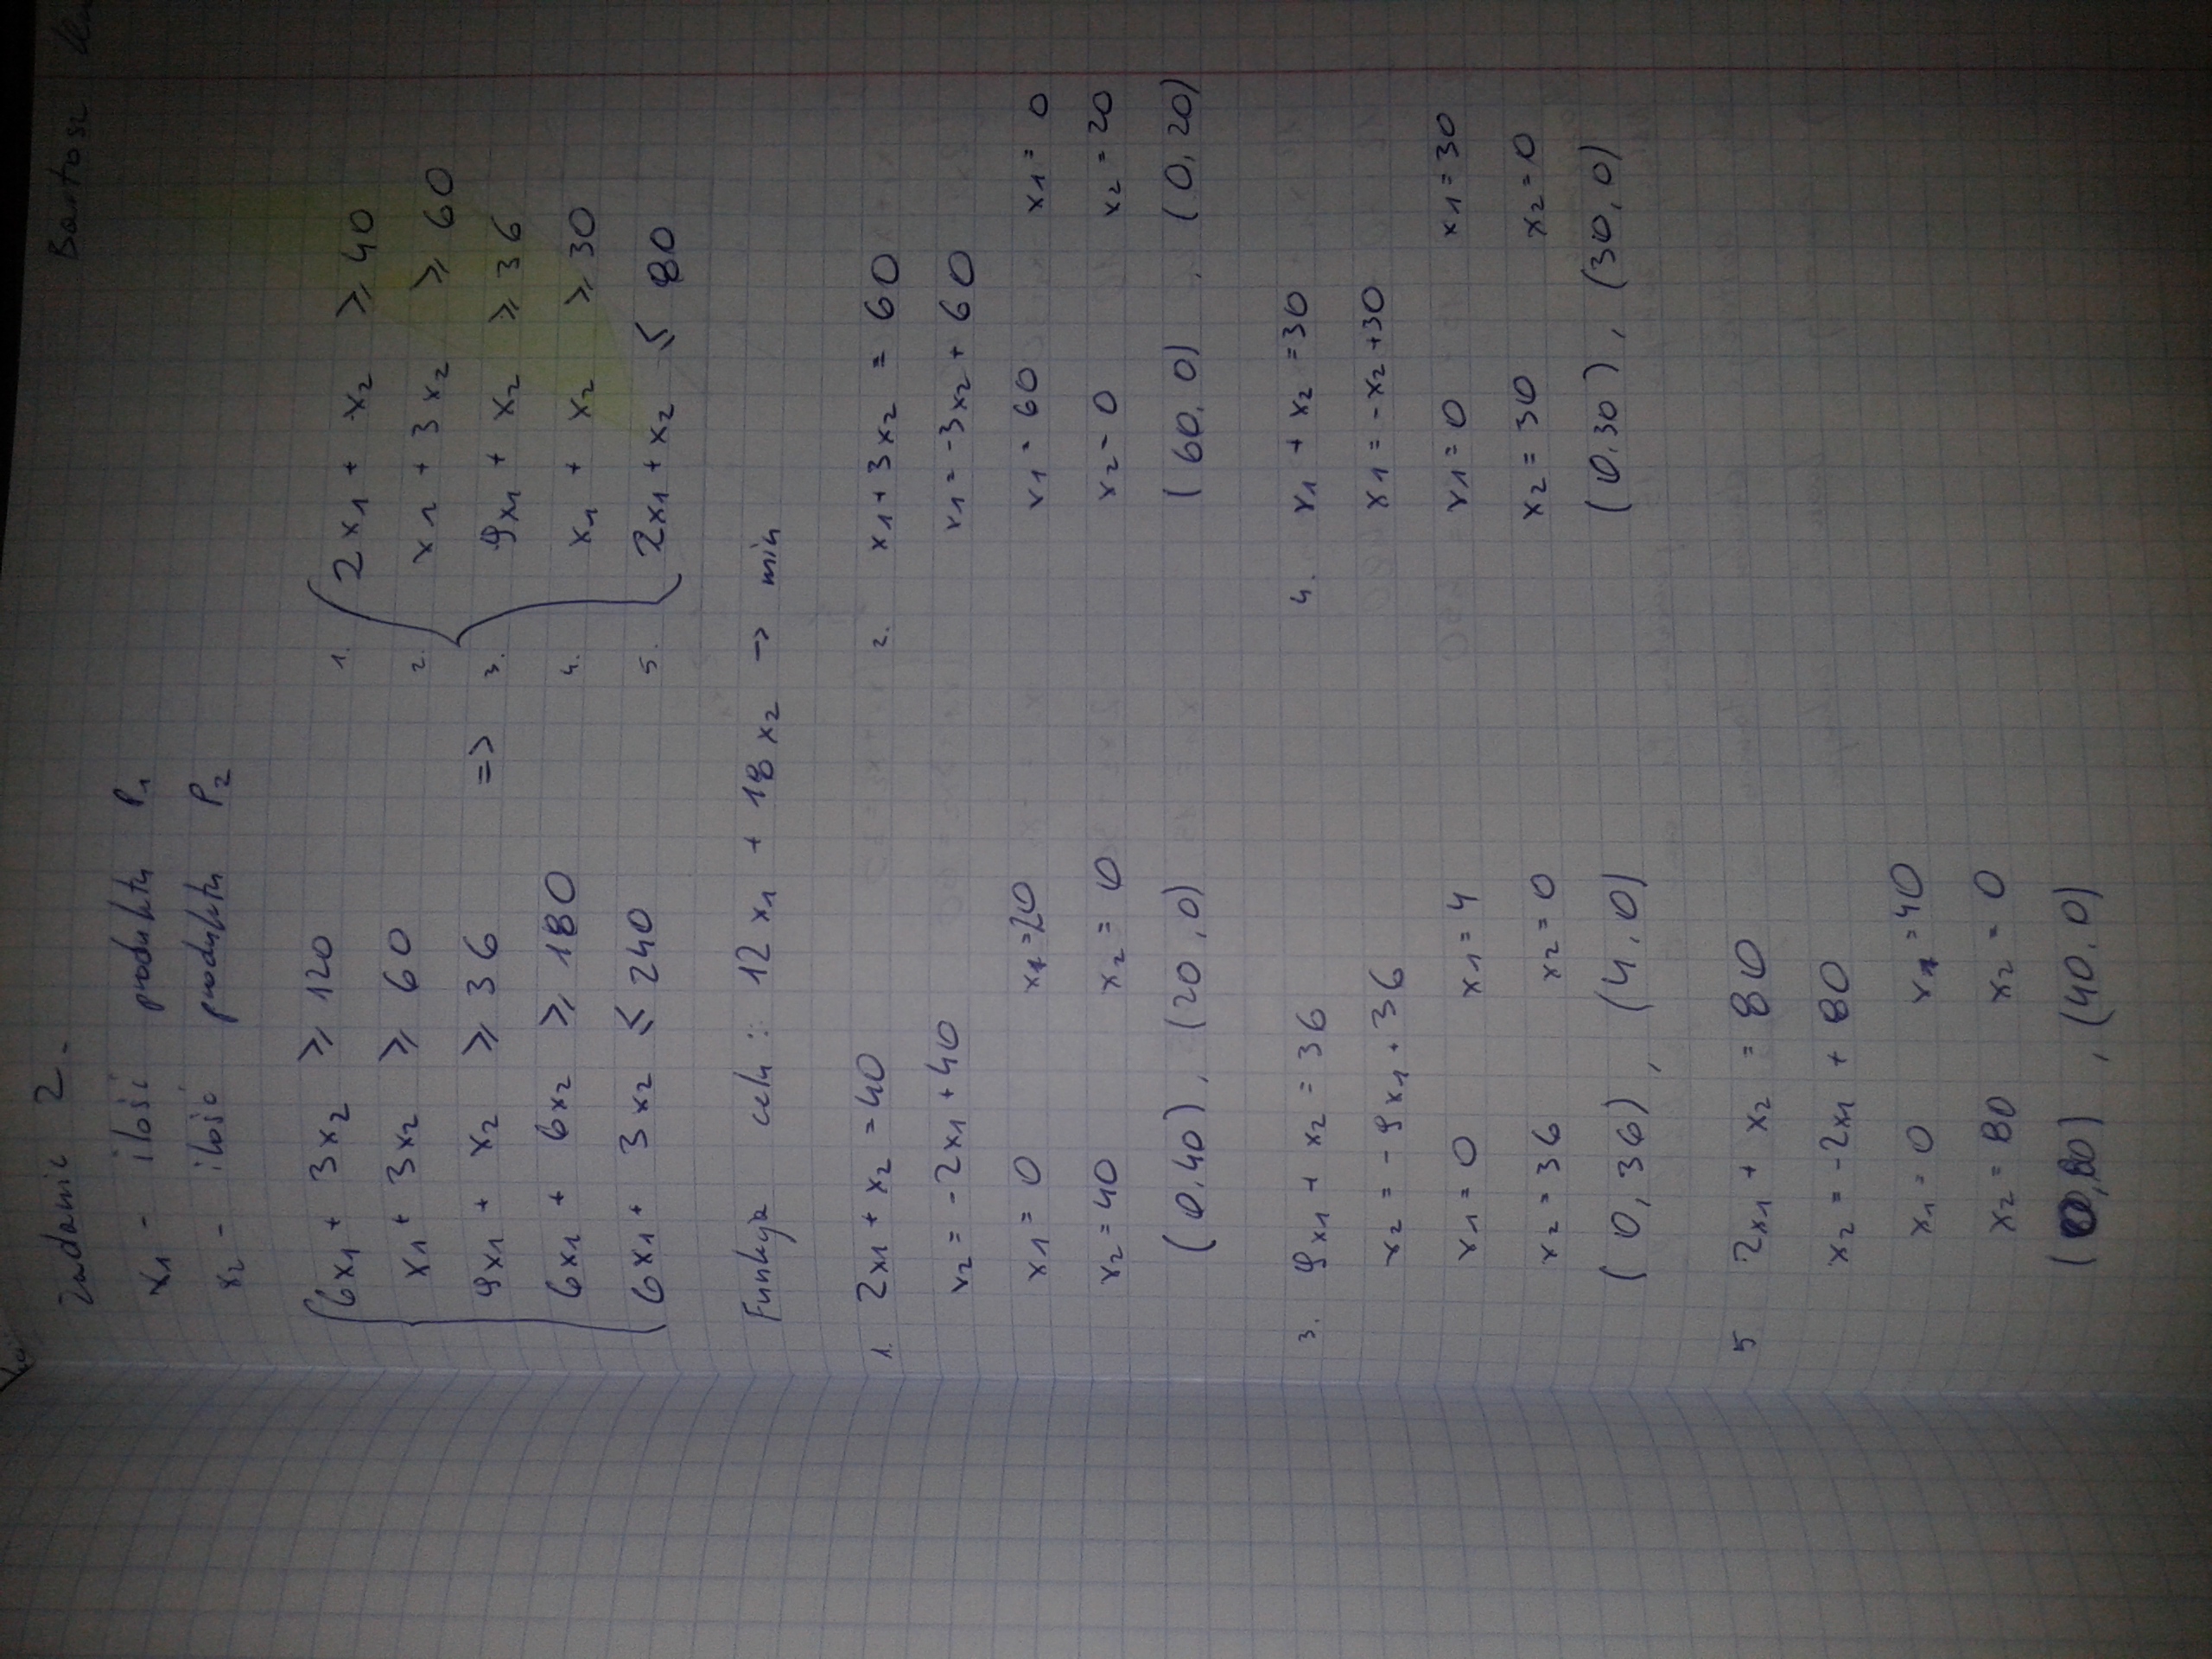 Zadanie 2. Bartosz
x₁ - ilość produktu P₁
x₂ - ilość produktu P₂
6x₁ + 3x₂ ≥ 120
x₁ + 3x₂ ≥ 60
9x₁ + x₂ ≥ 36
6x₁ + 6x₂ ≥ 180
6x₁ + 3x₂ ≤ 240
=>
1. 2x₁ + x₂ ≥ 40
2. x₁ + 3x₂ ≥ 60
3. 9x₁ + x₂ ≥ 36
4. x₁ + x₂ ≥ 30
5. 2x₁ + x₂ ≤ 80
Funkcja celu: 12x₁ + 18x₂ -> min
1. 2x₁ + x₂ = 40
x₂ = -2x₁ + 40
x₁ = 0 x₁ = 20
x₂ = 40 x₂ = 0
(0,40), (20,0)
2. x₁ + 3x₂ = 60
x₁ = -3x₂ + 60
x₁ = 60 x₁ = 0
x₂ = 0 x₂ = 20
(60,0), (0,20)
3. 9x₁ + x₂ = 36
x₂ = -9x₁ + 36
x₁ = 0 x₁ = 4
x₂ = 36 x₂ = 0
(0,36), (4,0)
4. x₁ + x₂ = 30
x₁ = -x₂ + 30
x₁ = 0 x₁ = 30
x₂ = 30 x₂ = 0
(0,30), (30,0)
5 2x₁ + x₂ = 80
x₂ = -2x₁ + 80
x₁ = 0 x₁ = 40
x₂ = 80 x₂ = 0
(0,80), (40,0)